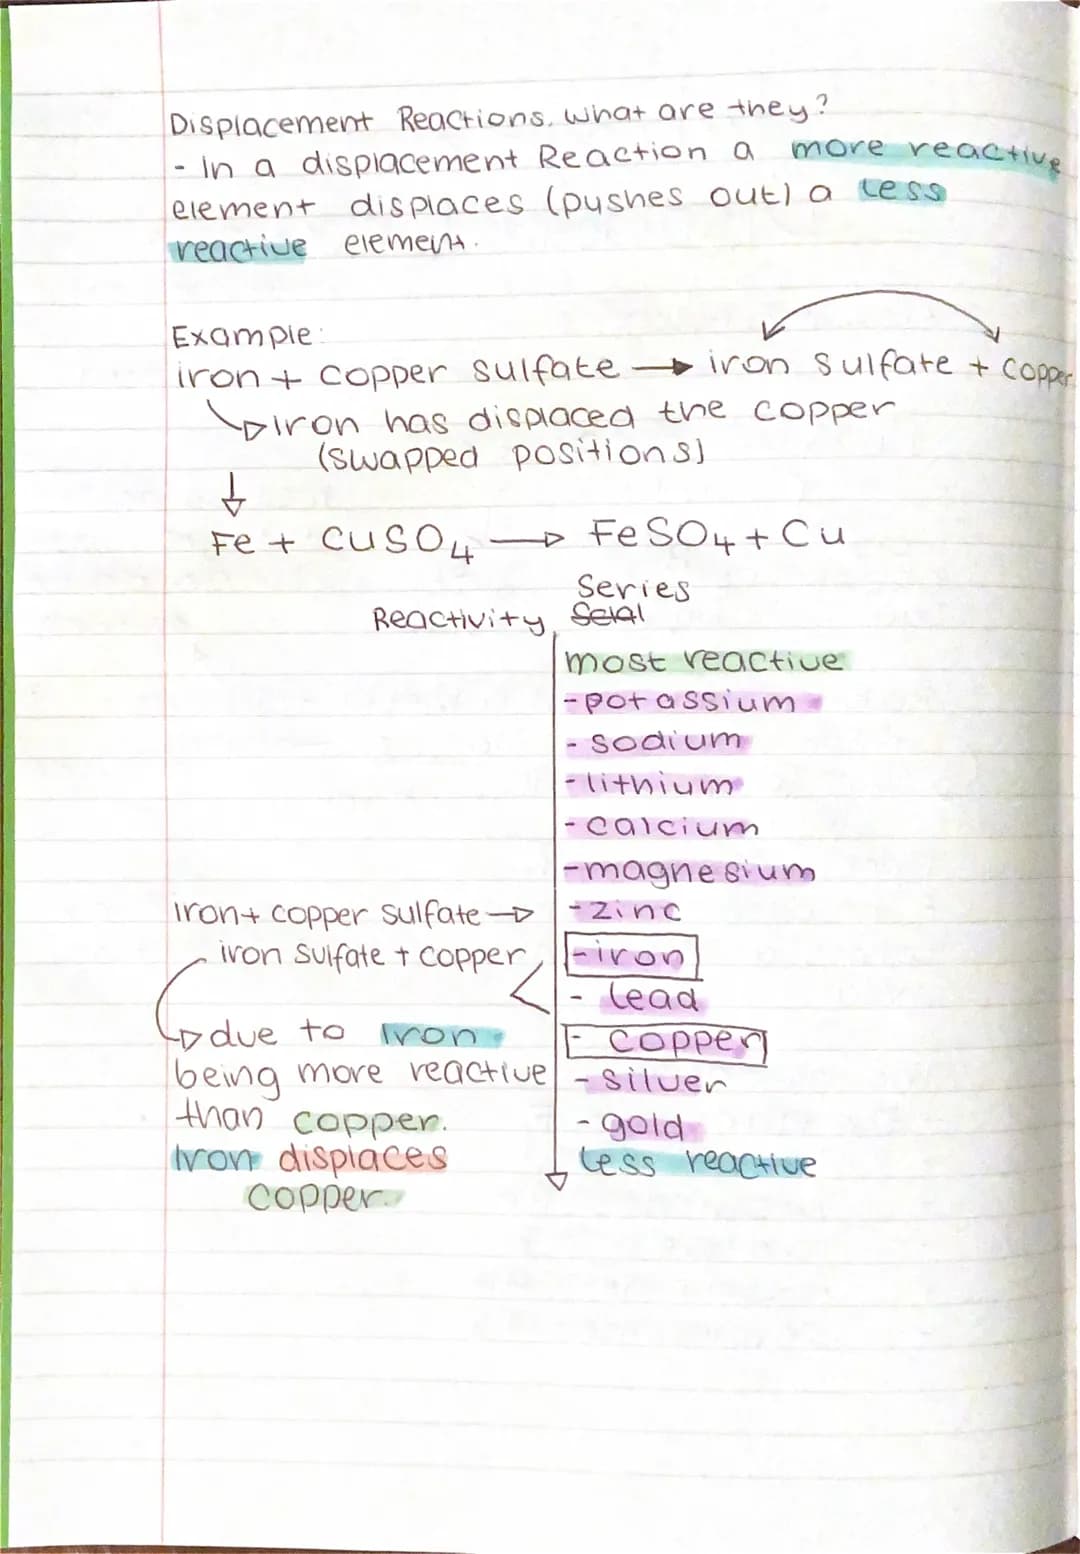 Displacement Reactions. What are they?
- In a displacement Reaction a more reactive
element displaces (pushes out) a less
reactive element.
Example:
iron + copper sulfate → iron sulfate + copper
iron has displaced the copper
(swapped positions)
Fe + CuSO4 → FeSO4 + Cu
Series
Reactivity
most reactive
- potassium
- sodium
- lithium
- calcium
- magnesium
- zinc
- iron
- lead
- copper
- silver
- gold
less reactive
iron + copper sulfate →
iron sulfate + copper
due to Iron
being more reactive
than copper.
Iron displaces
copper.